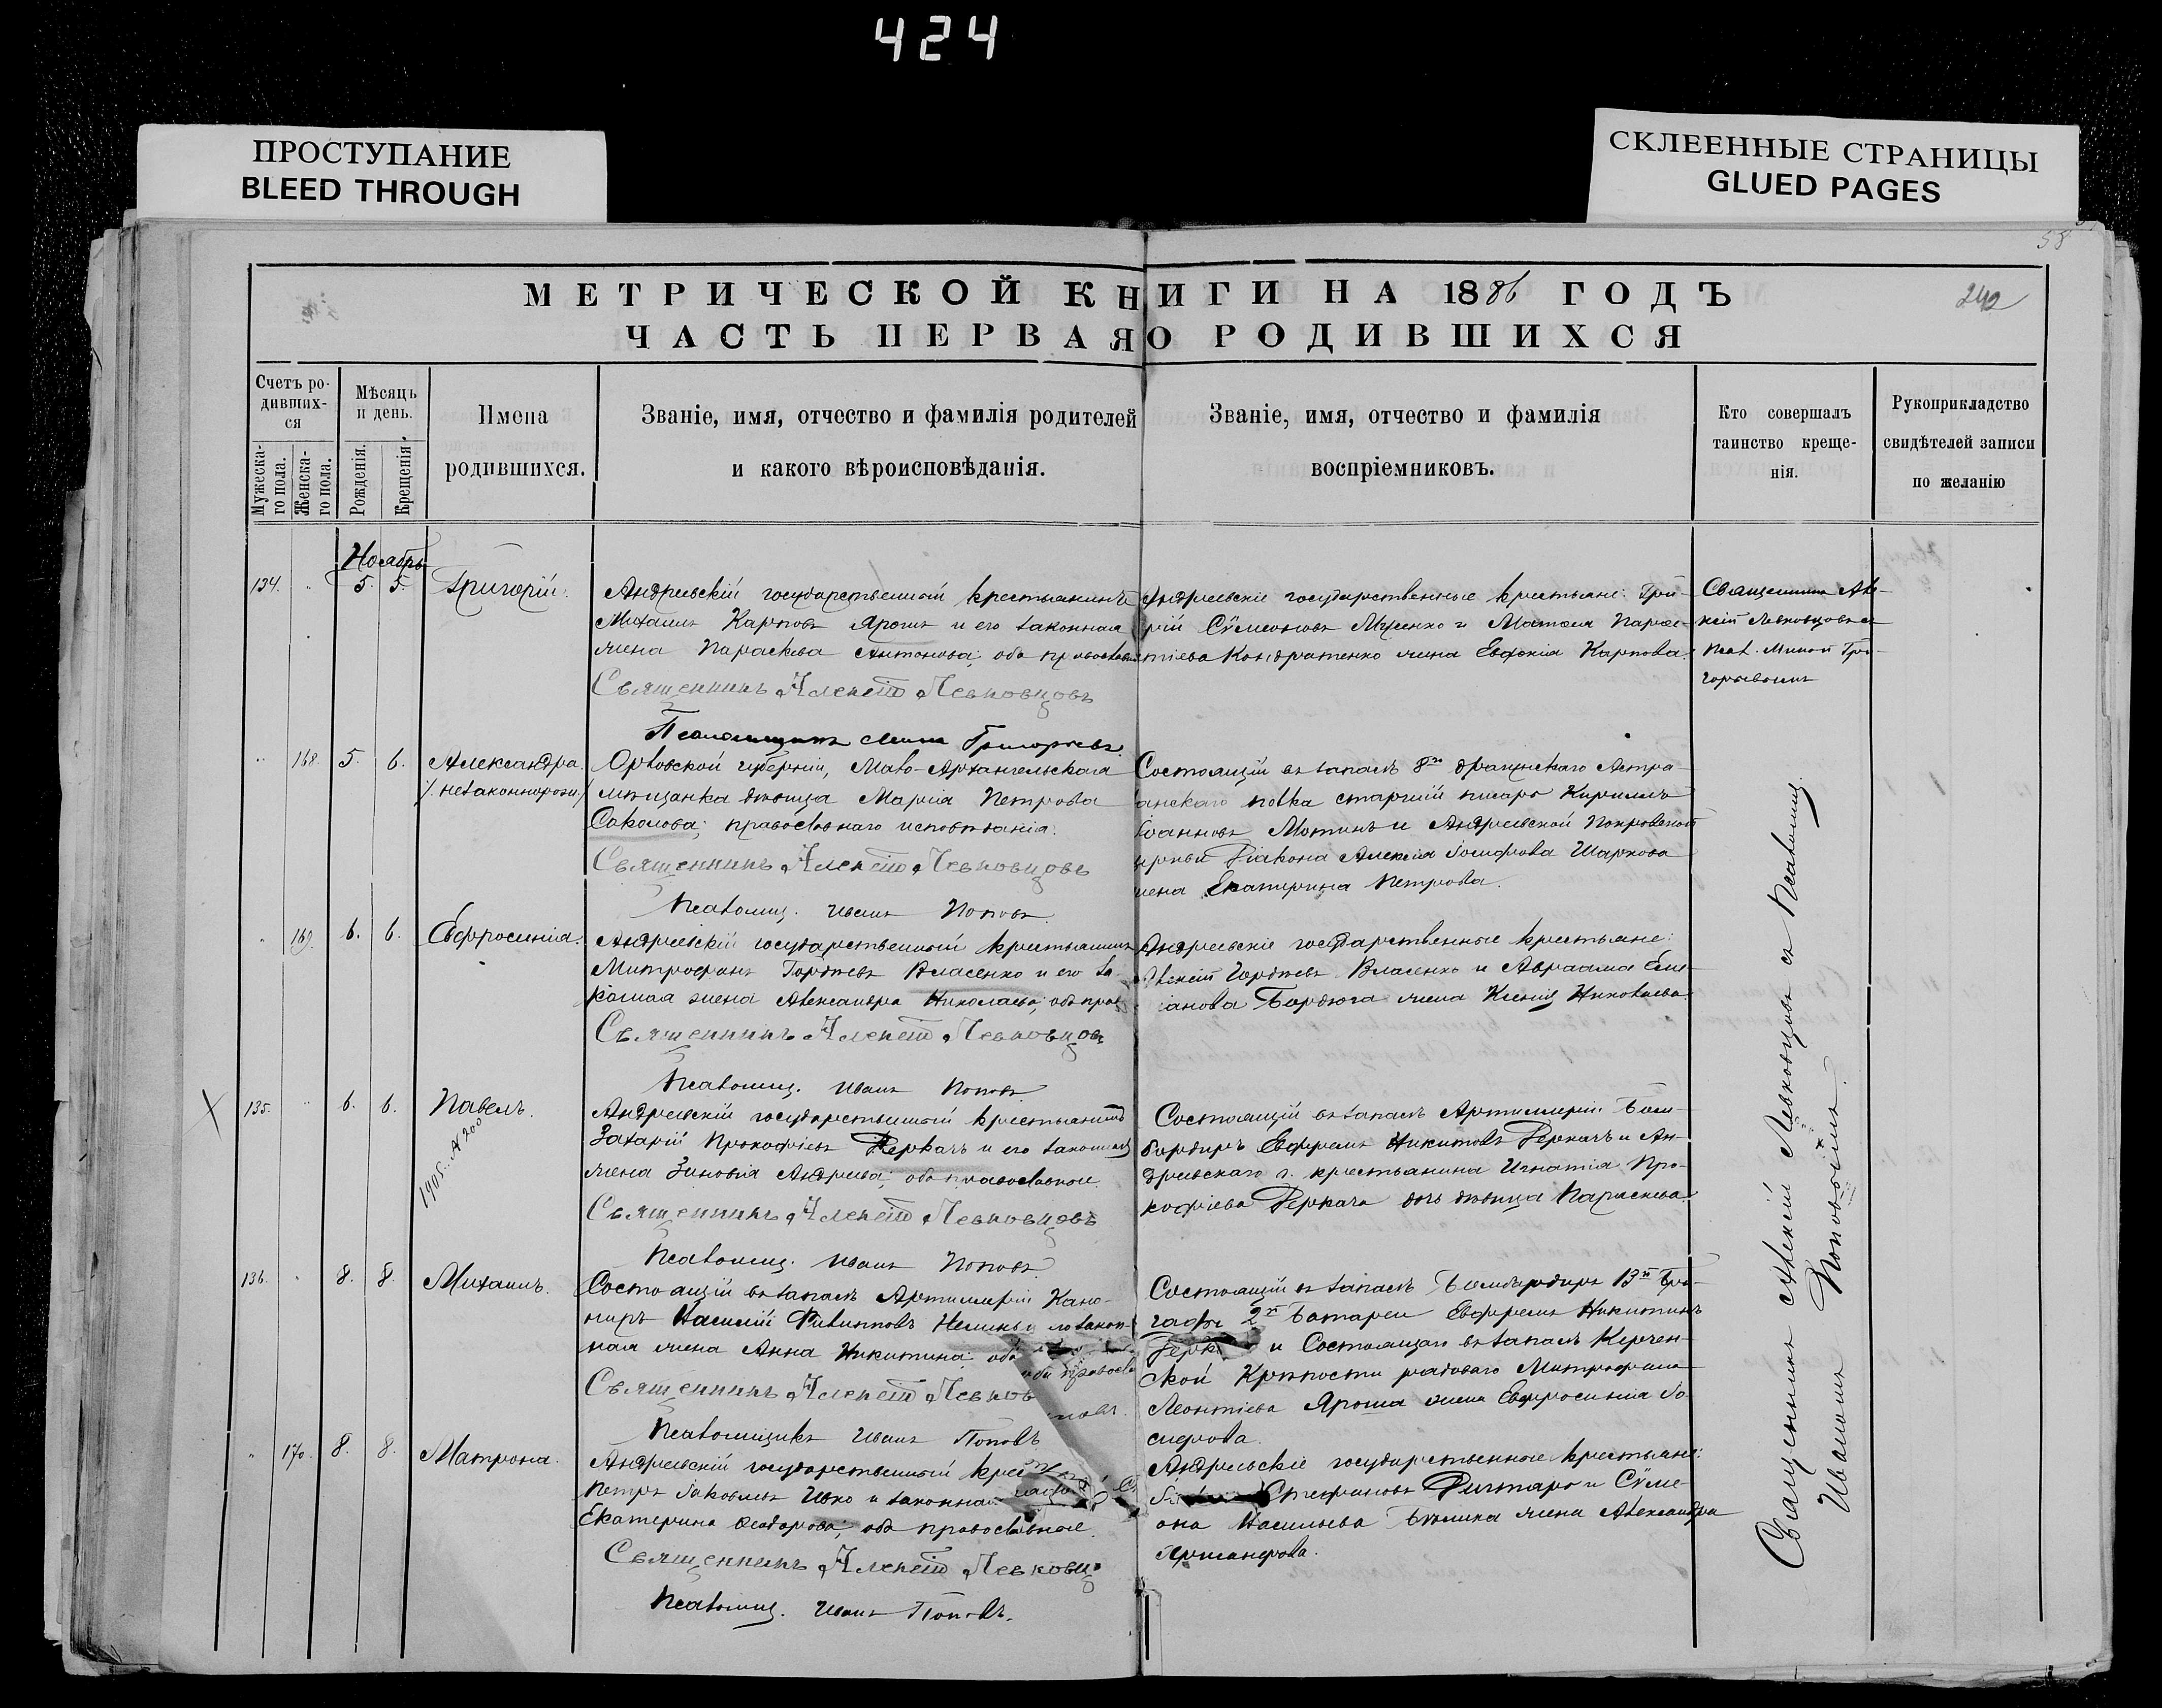 424
ПРОСТУПАНИЕ
BLEED THROUGH
СКЛЕЕННЫЕ СТРАНИЦЫ
GLUED PAGES
58
МЕТРИЧЕСКОЙ КНИГИ НА 1886 ГОДЪ
242
ЧАСТЬ ПЕРВАЯ О РОДИВШИХСЯ
Счетъ ро-
дивших-
ся
Мужеска-
го пола.
Женска-
го пола.
Мѣсяцъ
и день.
Рожденія.
Крещенія.
Имена
родившихся.
Званіе, имя, отчество и фамилія родителей
и какого вѣроисповѣданія.
Званіе, имя, отчество и фамилія
воспріемниковъ.
Кто совершалъ
таинство креще-
нія.
Рукоприкладство
свидѣтелей записи
по желанію
Ноябрь
134. " 5. 5. Григорій.
Андреевскій государственный крестьянинъ
Михаилъ Карповъ Ярошъ и его законная
жена Параскева Антонова; оба православн
Священникъ Алексій Левковцовъ
Псаломщикъ Мина Григорьевъ.
Андреевскіе государственные крестьяне: Гри-
рій Сѵмеоновъ Мусенко и Матвея Парѳе-
нтіева Кондратенко жена Евфимія Карпова.
Священникъ Але-
ксій Левковцовъ съ
Псал. Миной Гри-
горьевымъ
" 168. 5. 6. Александра.
(незаконнорожд.)
Орловской губерніи, Мало-Архангельская
мѣщанка дѣвица Марія Петрова
Соколова; православнаго исповѣданія.
Священникъ Алексій Левковцовъ
Псаломщ. Иванъ Поповъ.
Состоящій въ запасѣ 8го драгунскаго Астра-
ханскаго полка старшій писарь Кириллъ
Іоанновъ Мотинъ и Андреевской Покровской
церкви Діакона Алексія Іосифова Шаркова
жена Екатерина Петрова.
" 169. 6. 6. Евфросинія.
Андреевскій государственный крестьянинъ
Митрофанъ Гордѣевъ Власенко и его за-
конная жена Александра Николаева; оба прав
Священникъ Алексій Левковцовъ
Псаломщ. Иванъ Поповъ.
Андреевскіе государственные крестьяне:
Алексій Гордѣевъ Власенко и Авраама Еми-
ліанова Бордюга жена Ксенія Николаева.
135. " 6. 6. Павелъ.
1905. № 200
Андреевскій государственный крестьянинъ
Захарій Прокофіевъ Деркачъ и его законная
жена Зиновія Андреева; оба православные.
Священникъ Алексій Левковцовъ
Псаломщ. Иванъ Поповъ.
Состоящій въ запасѣ Артиллеріи Бом-
бардиръ Евфремъ Никитовъ Деркачъ и Ан-
дреевскаго г. крестьянина Игнатія Про-
кофіева Деркача дочь дѣвица Параскева.
136. " 8. 8. Михаилъ.
Состоящій въ запасѣ Артиллеріи Кано-
ниръ Василій Филиповъ и его закон-
ная жена Анна Никитина; оба
оба православ
Священникъ Алексій Левков
Псаломщикъ Иванъ Поповъ
Состоящій въ запасѣ Бомбардиръ 13й Бри-
гады 2й батареи Евфремъ Никитинъ
Дерк и Состоящаго въ запасѣ Керчен-
ской Крѣпости рядоваго Митрофана
Леонтіева Яроша жена Евфросинія Іо-
сифова.
" 170. 8. 8. Матрона.
Андреевскій государственный крес
Петръ Іаковлевъ Ивко и законная
Екатерина Ѳеодорова; оба православные.
Священникъ Алексій Левковц
Псаломщ. Иванъ Поповъ.
Андреевскіе государственные крестьяне:
Стефановъ и Сѵме-
она Васильева жена Александра
Священникъ Алексій Левковцовъ съ Псаломщ.
Иваномъ Поповымъ.